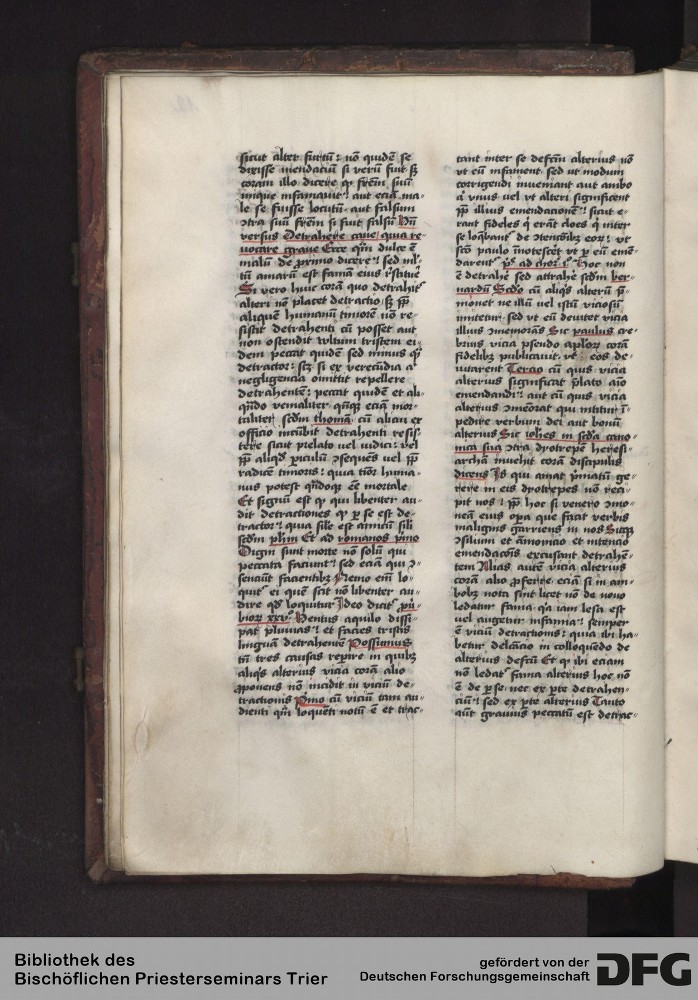 sicut alter furtū: nō quidē se
dixisse mendaciū si verū fuit sz
coram illo dicere qp frēm suū
inique infamavit: aut eciā ma-
le se fuisse locutū aut falsum
ɔtra suū frēm si fuit falsū
versus Detrahere cave quia re-
vocare grave Ecce qm dulce ē
malū de primo dicere: sed
tū amarū est famā eius
Si vero huic corā quo detrahit
alteri nō placet detractio sz
aliquē humanū timorē nō re-
sistit detrahenti cū posset aut
non ostendit vltum tristem ei-
dem peccat quidē sed minus
detractor: si ex verecūdia
negligencia omittit repellere
detrahentē: peccat quidē et
venialiter eciā mor-
taliter scdm thomā cū alicui ex
officio incūbit detrahenti resis-
tere sicut prelato vel iudici: vel
aliqd piculū ɔsequēs vel
radicē timoris: quia timor huma-
nus potest qñdoqz ēē mortale
Et signū est qp qui libenter au-
dit detractiones qp se est de-
tractor: quia sile est amicū sili
scdm phm Et ad romanos pmo
Digni sunt morte nō solū qui
peccata faciunt: sed eciā qui ɔ-
senciūt facientibz Nemo em̄ lo-
quit ei quē scit nō libenter au-
dire qd loquitur Ideo dicit
biorz xxv Ventus aquilo dissi-
pat pluvias: et facies tristis
linguā detrahentē Possumus
tñ tres causas repire in quibz
aliqs alterius vicia corā alio
pponens nō incidit in viciū de-
tractionis Pmo cū viciū tam au-
dienti qm loquēti notū ē et trac-
tant inter se defcm̄ alterius nō
vt eū infament sed vt modum
corrigendi inveniant aut ambo
vnus vel vt alteri significent
illius emendacionē: sicut e-
rant fideles inter
se loqbant de eorz: vt
scō paulo īnotescēt vt p eū emē-
darent ad chor Hoc non
ē detrahē sed attrahē scdm ber-
nardū Scdo cū aliqs alterū
monet ne illū vel istū viciosū
imitetur sed vt eū devitet vicia
illius ɔmemorās Sic paulus cre-
brius vicia pseudo aplorz corā
fidelibz publicavit vt eos de-
vitarent Tercio cū quis vicia
alterius significat plato aīo
emendandi: aut cū quis vicia
alterius ɔmēorat qui nititur ī-
pedire verbum dei aut bonū
alterius Sic iohēs in scda cano-
nica sua ɔtra dyotrepē heresi-
archā invehit corā discipulis
dicens Is qui amat pmatū ge-
rere in eis dyotrepes nō reci-
pit nos: hoc si venero ɔmo-
nea eius opa que facit verbis
malignis garriens in nos Sicqz
ɔsilium et āmonicio et intencio
emendacōis excusant detrahē-
tem Alias autē vicia alterius
corā alio pferre eciā si in am-
bobz nota sint licet nō de novo
ledatur fama qa iam lesa est
vel augetur infamia: semper
ē viciū detractionis: quia ibi ha-
betur delcācio in colloquēdo de
alterius defcū Et qp ibi eciam
nō ledat fama alterius hoc nō
ē de p se nec ex pte detrahen-
ciū: sed ex pte alterius Tanto
aūt gravius peccatū est detrac-
Bibliothek des
Bischöflichen Priesterseminars Trier
gefördert von der
Deutschen Forschungsgemeinschaft
DFG